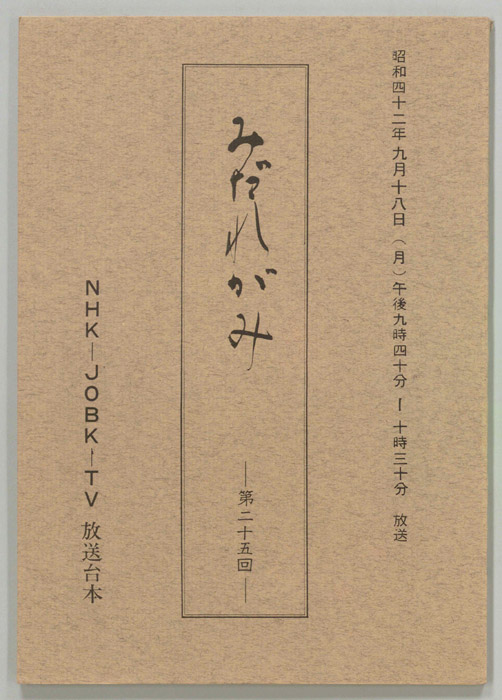 昭和四十二年九月十八日（月）午後九時四十分ー十時三十分　放送
みだれがみ
―第二十五回―
NHK―JOBK―TV 放送台本